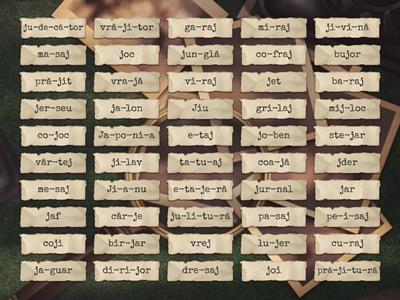 ju-de-că-tor vră-ji-tor ga-raj mi-raj ji-vi-nă
ma-saj joc jun-glă co-fraj bujor
pră-jit vra-jă vi-raj jet ba-raj
jer-seu ja-lon Jiu gri-laj mij-loc
co-joc Ja-po-ni-a e-taj jo-ben ste-jar
vâr-tej ji-lav ta-tu-aj coa-jă jder
me-saj Ji-a-nu e-ta-je-ră jur-nal jar
jaf câr-je ju-li-tu-ră pa-saj pe-i-saj
coji bir-jar vrej lu-jer cu-raj
ja-guar di-ri-jor dre-saj joi pră-ji-tu-ră